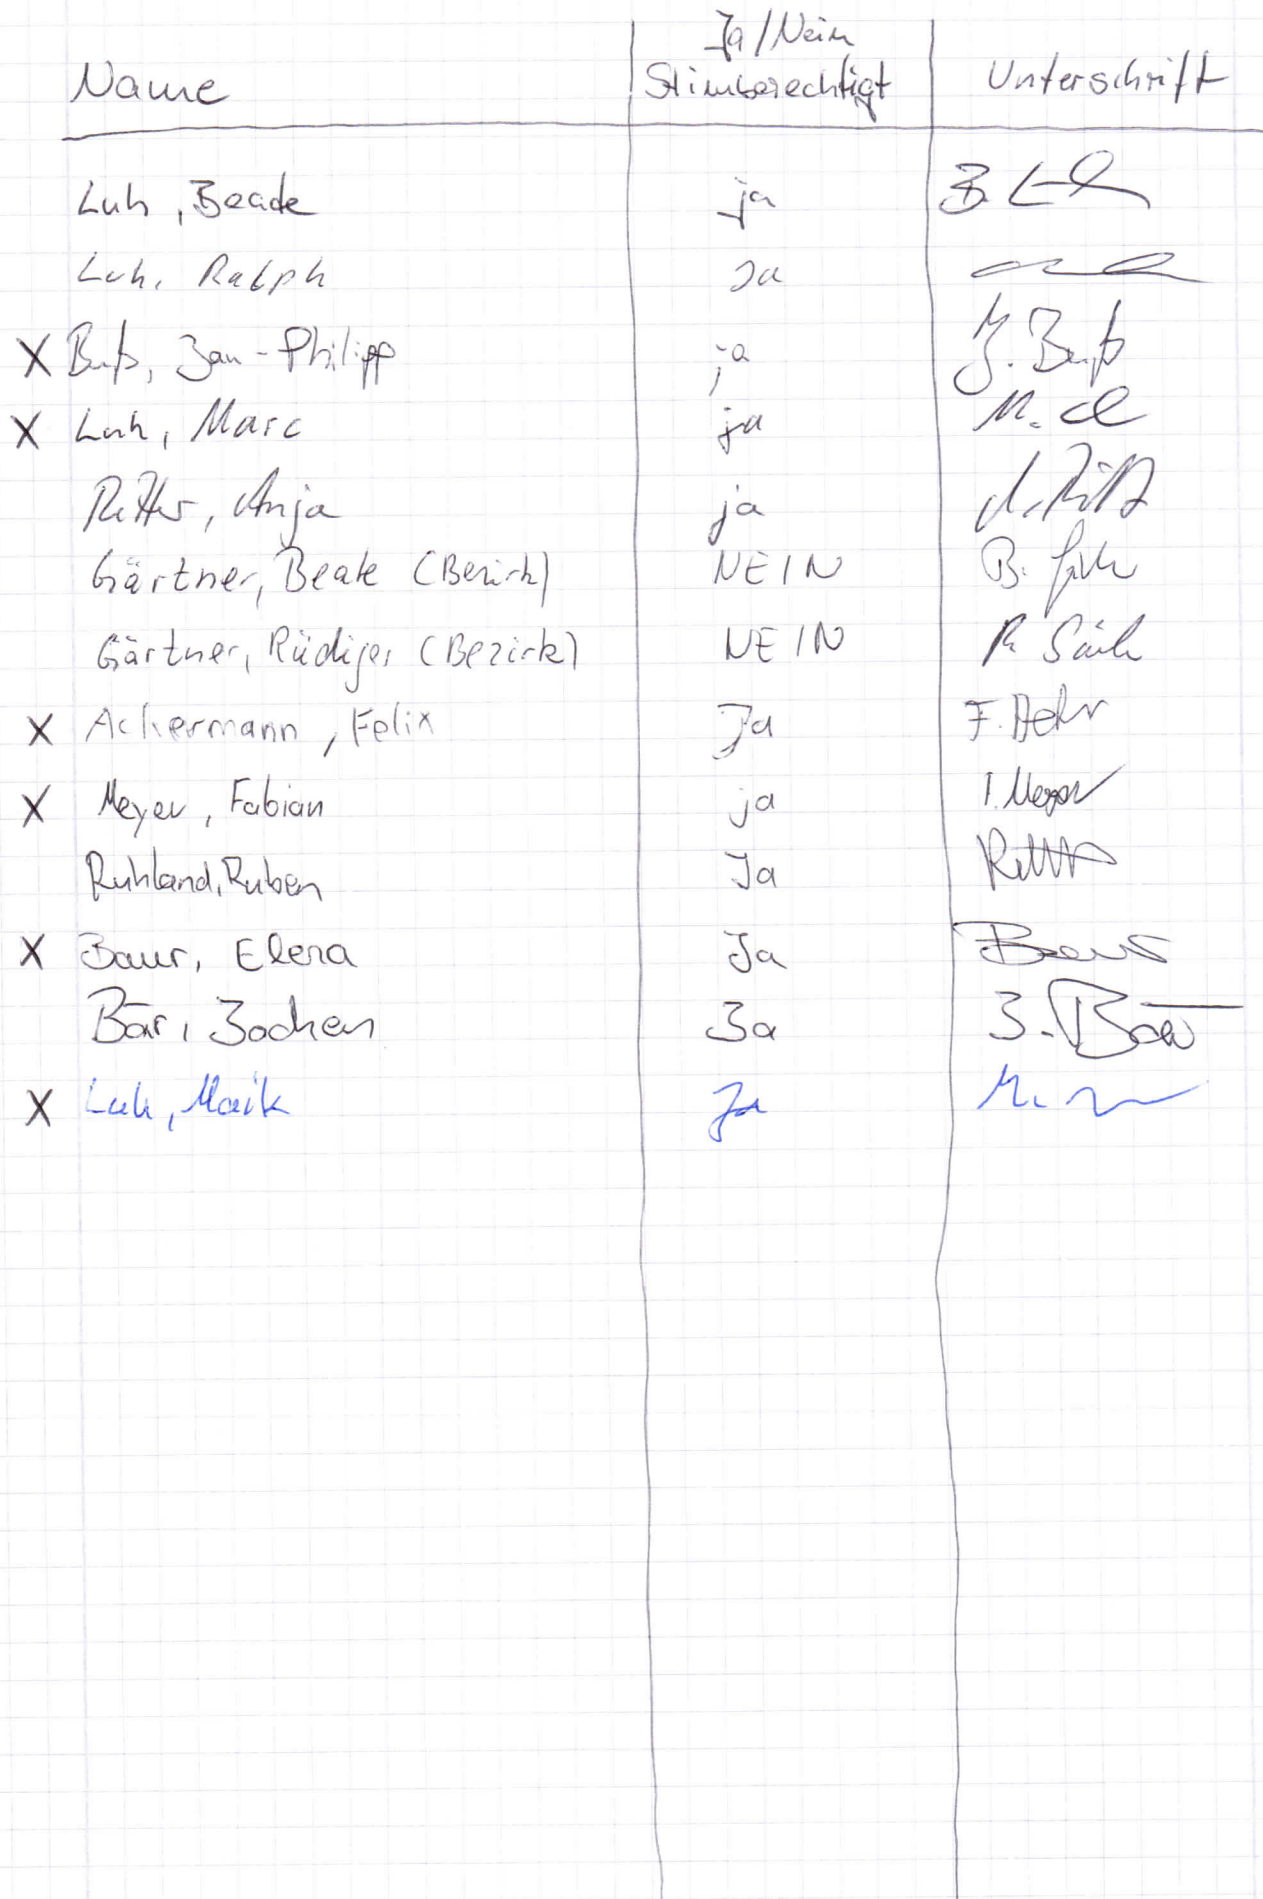 Name Ja/Nein Stimberechtigt Unterschrift
Luh, Beade ja B. Luh
Luh, Ralph Ja
X Buß, Jan-Philipp ja J. Buß
X Luh, Marc ja M.
Ritter, Anja ja
Gärtner, Beate (Bezirk) NEIN B.
Gärtner, Rüdiger (Bezirk) NEIN R.
X Ackermann, Felix Ja F.
X Meyer, Fabian ja Meyer
Ruhland, Ruben Ja
X Baur, Elena Ja Baur
Bär, Jochen Ja J. Bär
X Luh, Maik Ja M.